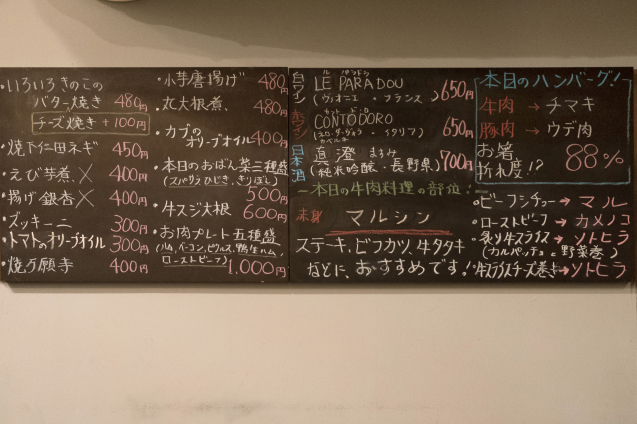 ・いろいろきのこの
バター焼き 480円
チーズ焼き +100円
・焼下仁田ネギ 450円
・えび芋煮 × 400円
・揚げ銀杏 × 400円
・ズッキーニ 300円
・トマトのオリーブオイル 300円
・焼万願寺 400円
・小芋唐揚げ 480円
・丸大根煮 480円
・カブの
オリーブオイル 400円
・本日のおばん菜三種盛
(スパサラ ひじき、きりぼし)
500円
・牛スジ大根 600円
・お肉プレート五種盛
(ハム、ベーコン、ピクルス、鴨生ハム、
ローストビーフ) 1,000円
白ワイン
LE PARADOU 650円
(ヴィオーニエ・フランス)
赤ワイン
CONTODORO 650円
イタリア)
日本酒
直澄 ますみ 700円
(純米吟醸・長野県)
―本日の牛肉料理の部位!―
赤身 マルシン
ステーキ、ビフカツ、牛タタキ
などに、おすすめです!
本日のハンバーグ!
牛肉 → チマキ
豚肉 → ウデ肉
お箸
折れ度!? 88%
・ビーフシチュー → マル
・ローストビーフ → カメノコ
・炙り牛スライス → ソトヒラ
(カルパッチョと野菜巻)
・牛スライスチーズ巻き → ソトヒラ